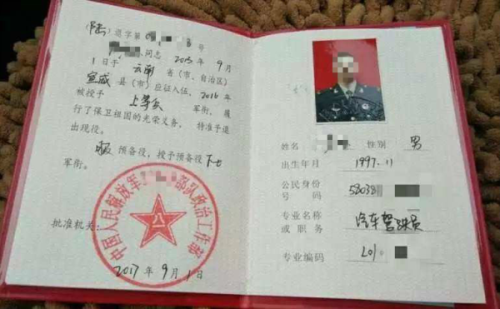 (陆)退字第09
同志 2015 年 9 月
1 日于 云南 省(市、自治区)
宣威 县(市)应征入伍, 2016
被授予 上等兵 军衔。履
行了保卫祖国的光荣义务。特准予退
出现役。
服 预备役,授予预备役 下士
军衔。
中国人民解放军 部队政治工作部
批准机关:
2017 年 9 月 1
姓名 性别 男
出生年月 1997.11
公民身份
号码 53038
专业名称
或职务 汽车驾驶员
专业编码 201